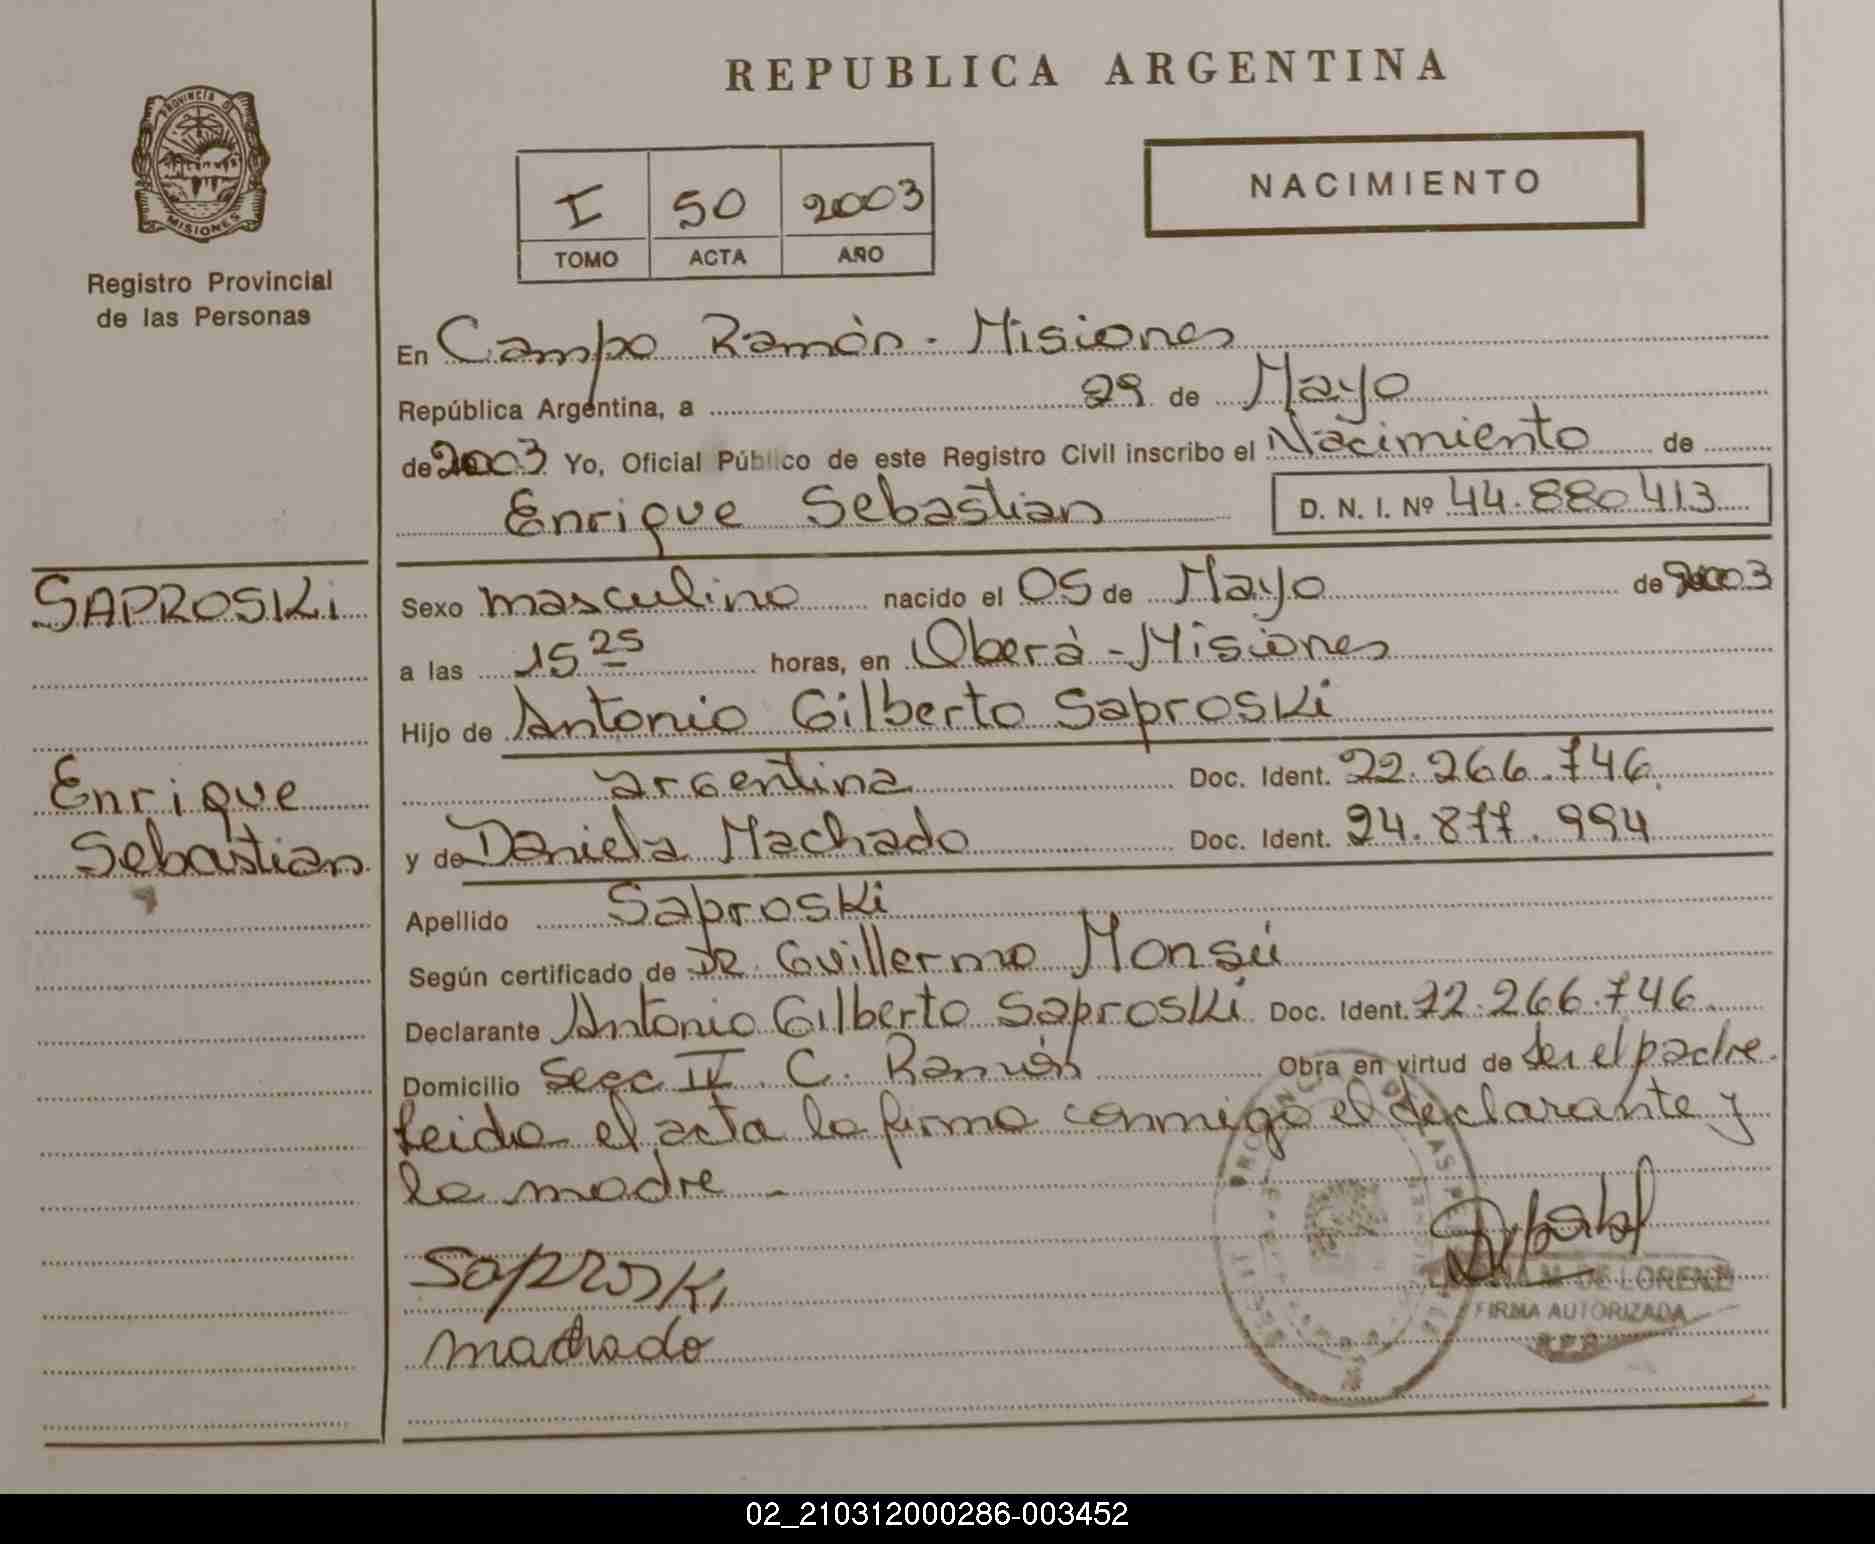 REPUBLICA ARGENTINA
PROVINCIA D
MISIONES
Registro Provincial
de las Personas
I 50 2003
TOMO ACTA AÑO
NACIMIENTO
En Campo Ramón - Misiones
República Argentina, a 29 de Mayo
de 2003 Yo, Oficial Público de este Registro Civil inscribo el Nacimiento de
Enrique Sebastian D. N. I. Nº 44.880413
SAPROSKi
Enrique
Sebastian
Sexo masculino nacido el 05 de Mayo de 2003
a las 15 25 horas, en Oberá - Misiones
Hijo de Antonio Gilberto Saproski
argentina Doc. Ident. 22.266.746
y de Daniela Machado Doc. Ident. 24.877.994
Apellido Saproski
Según certificado de DR. Guillermo Monsú
Declarante Antonio Gilberto Saproski Doc. Ident. 22.266.746
Domicilio Secc IV. C. Ramón Obra en virtud de ser el padre.
Leida el acta la firma conmigo el declarante y
la madre -
Saproski
machado
M. DE LORENZ
FIRMA AUTORIZADA
02_210312000286-003452